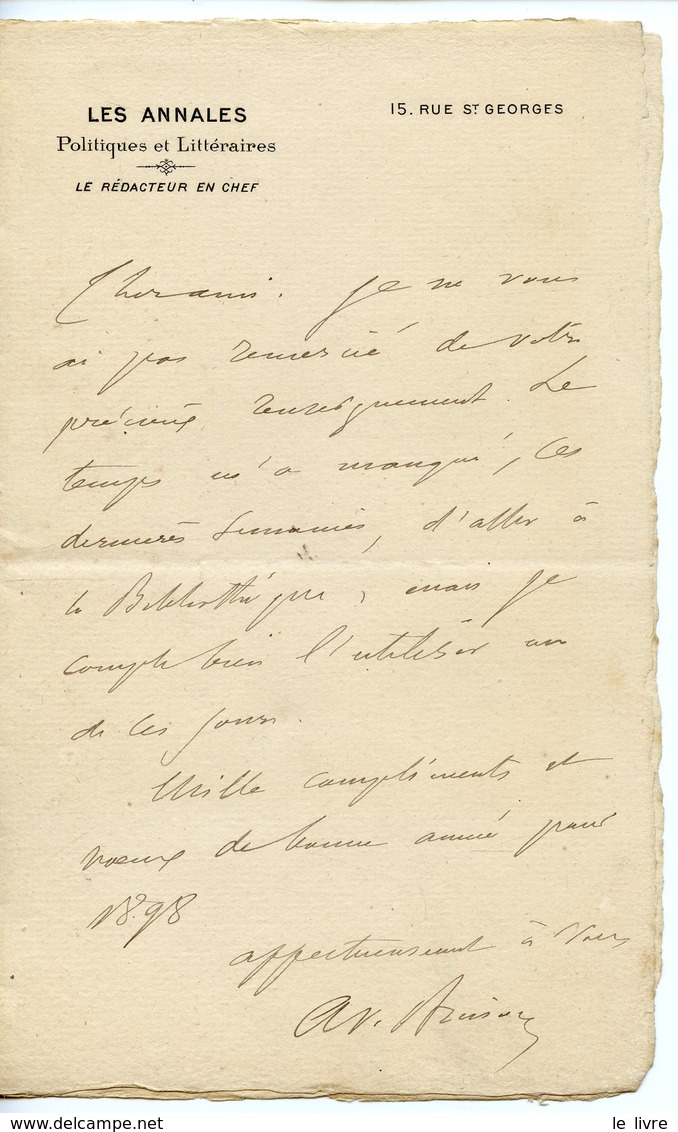 LES ANNALES
Politiques et Littéraires
LE RÉDACTEUR EN CHEF
15. RUE ST GEORGES
Cher ami. Je ne vous
ai pas remercié de votre
précieux renseignement. Le
temps m'a manqué, ces
dernières semaines, d'aller à
la Bibliothèque, mais je
compte bien l'utiliser un
de ces jours.
Mille compliments et
voeux de bonne année pour
1898
affectueusement à vous
Av. Brisson
le livre